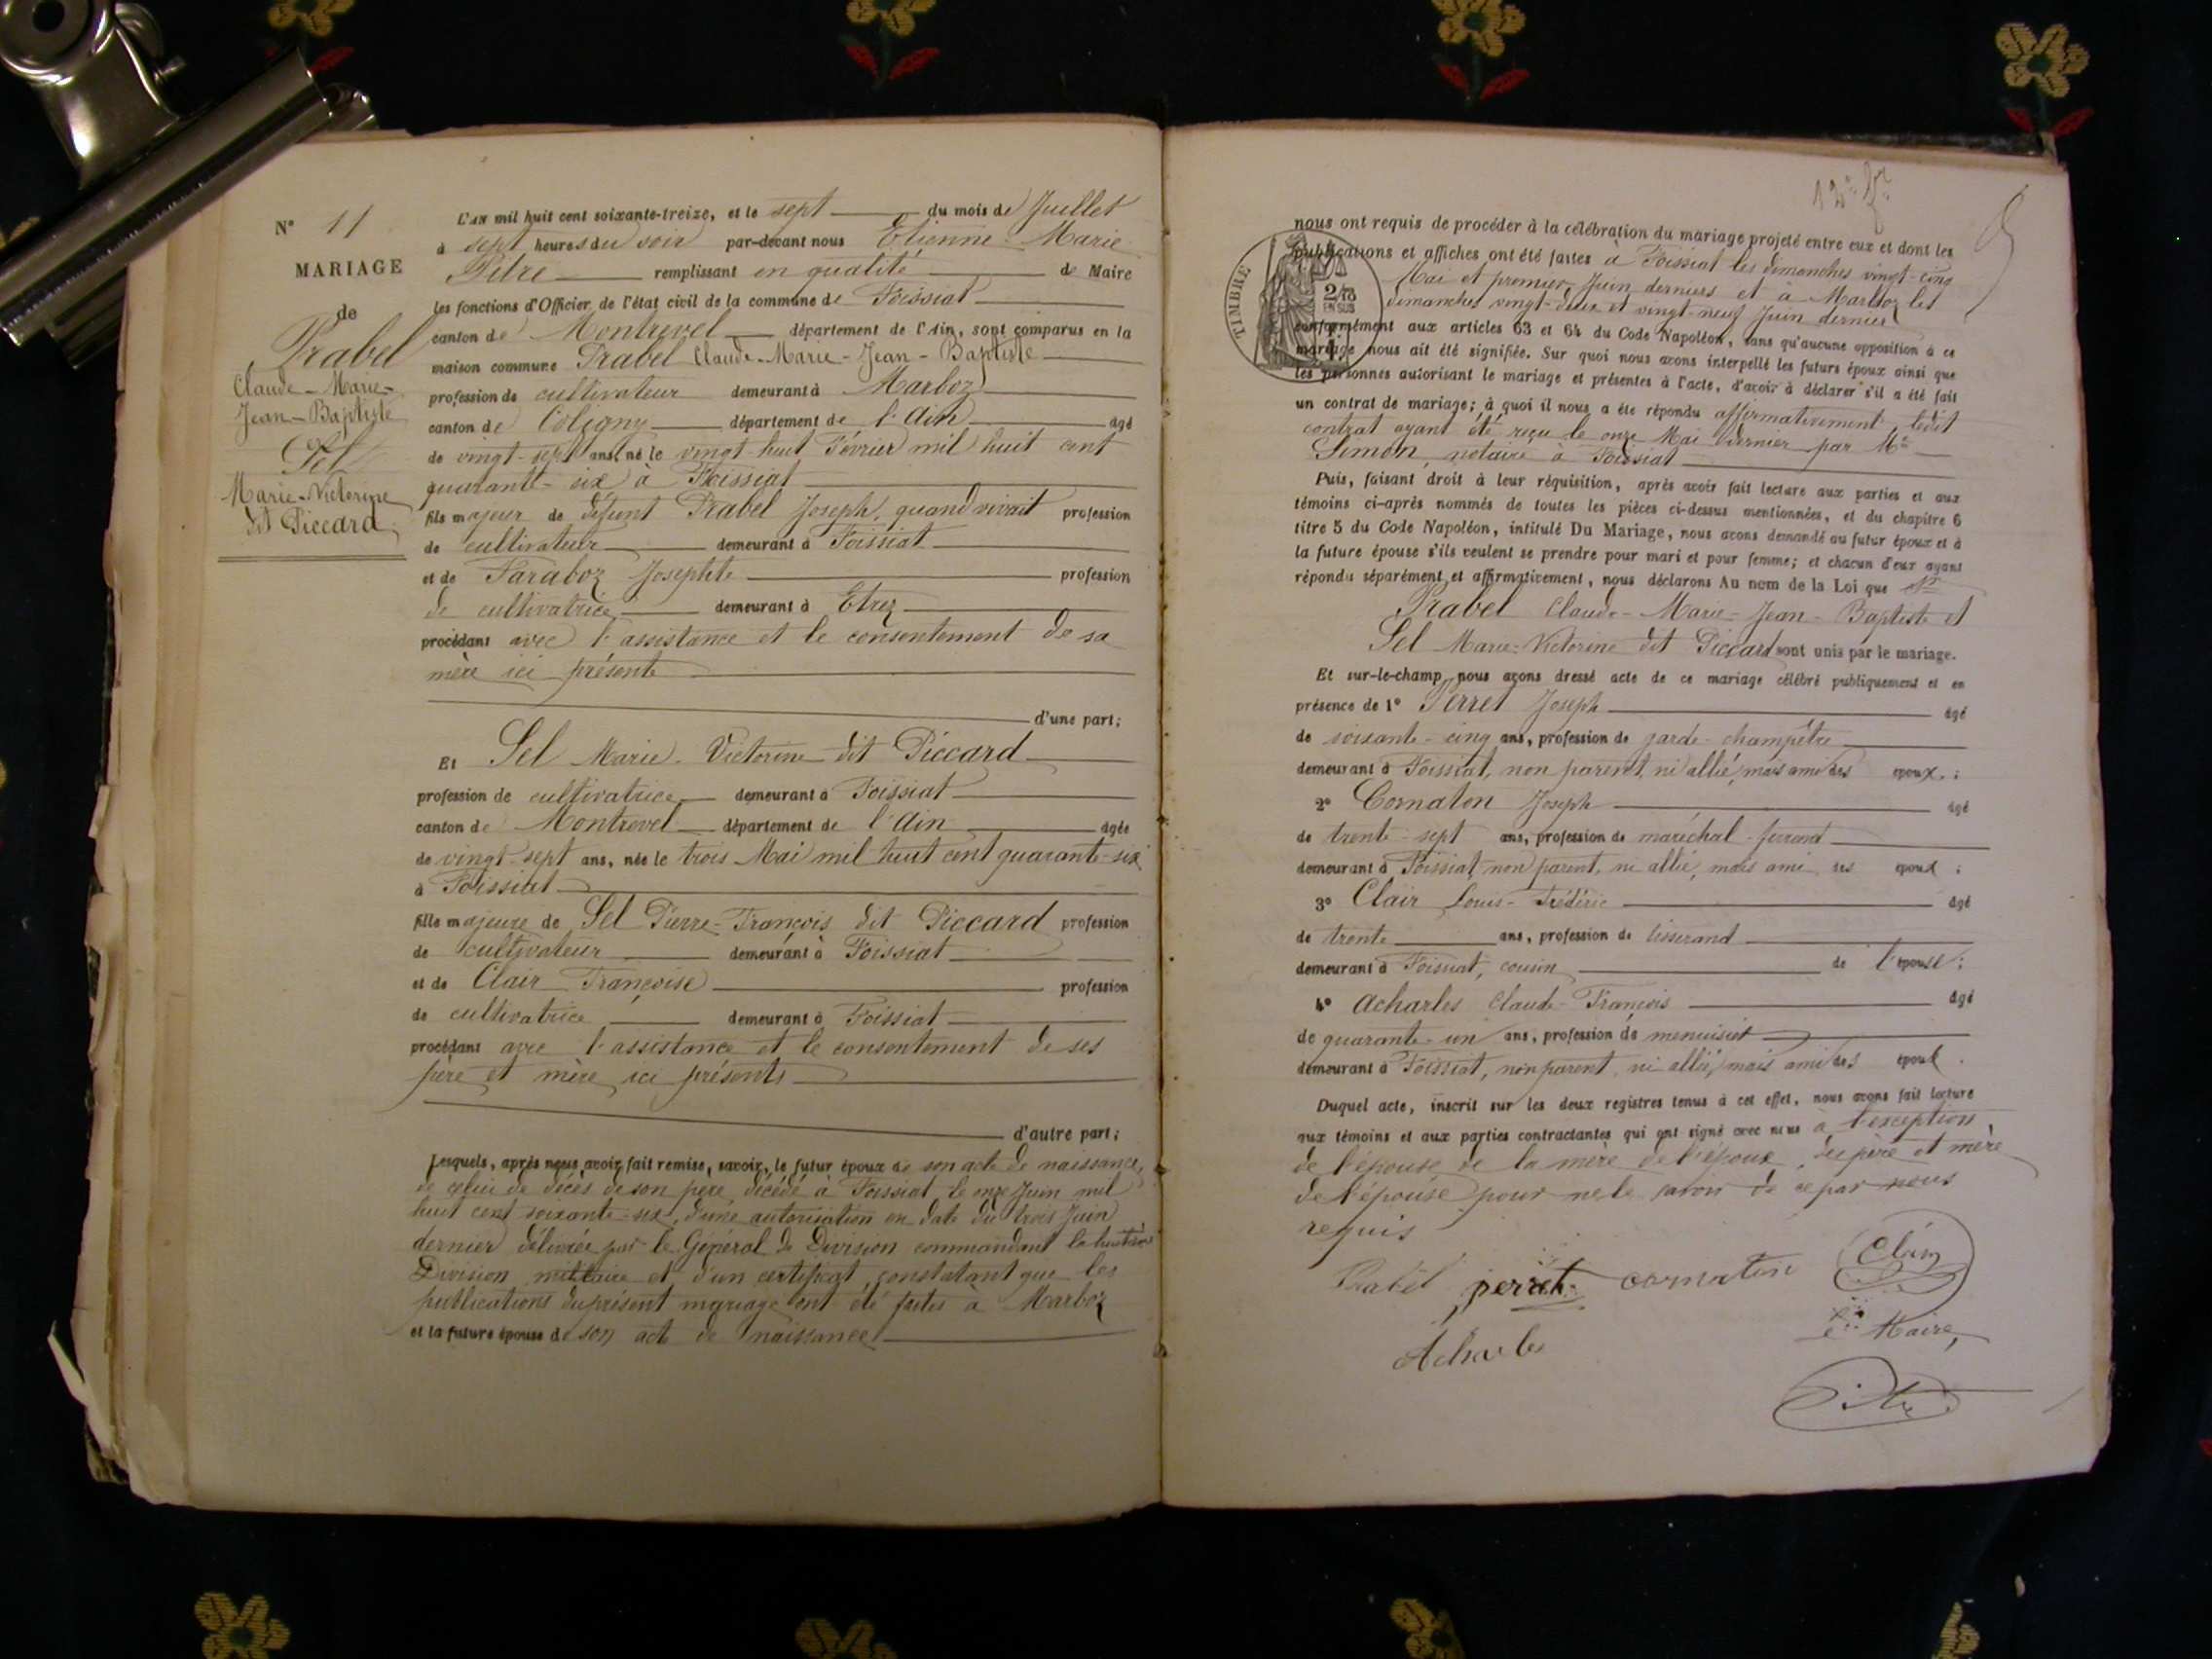 N° 11
MARIAGE
de
Prabel
Claude-Marie-
Jean-Baptiste
Sel
Marie-Victorine
dit Piccard
L'AN mil huit cent soixante-treize, et le sept du mois de Juillet
à sept heures du soir par-devant nous Etienne Marie
Pitre remplissant en qualité de Maire
les fonctions d'Officier de l'état civil de la commune de Foissiat
canton de Montrevel département de l'Ain, sont comparus en la
maison commune Prabel Claude-Marie-Jean-Baptiste
profession de cultivateur demeurant à Marboz
canton de Coligny département de l'Ain âgé
de vingt-sept ans, né le vingt-huit Février mil huit cent
quarante-six à Foissiat
fils majeur de défunt Prabel Joseph, quand vivait profession
de cultivateur demeurant à Foissiat
et de Faraboz Josephte profession
de cultivatrice demeurant à Etrez
procédant avec l'assistance et le consentement de sa
mère ici présente
d'une part;
Et Sel Marie-Victorine dit Piccard
profession de cultivatrice demeurant à Foissiat
canton de Montrevel département de l'Ain âgée
de vingt-sept ans, née le trois Mai mil huit cent quarante-six
à Foissiat
fille majeure de Sel Pierre-François dit Piccard profession
de cultivateur demeurant à Foissiat
et de Clair Françoise profession
de cultivatrice demeurant à Foissiat
procédant avec l'assistance et le consentement de ses
père et mère ici présents
d'autre part;
Lesquels, après nous avoir fait remise, savoir, le futur époux de son acte de naissance,
de celui de décès de son père, décédé à Foissiat le onze Juin mil
huit cent soixante-six, d'une autorisation en date du trois Juin
dernier délivrée par le Général de Division commandant la huitième
Division militaire et d'un certificat constatant que les
publications du présent mariage ont été faites à Marboz
et la future épouse de son acte de naissance
nous ont requis de procéder à la célébration du mariage projeté entre eux et dont les
publications et affiches ont été faites à Foissiat les dimanches vingt-cinq
Mai et premier Juin derniers et à Marboz les
dimanches vingt-deux et vingt-neuf Juin dernier
TIMBRE
2/10
EN SUS
conformément aux articles 63 et 64 du Code Napoléon, sans qu'aucune opposition à ce
mariage nous ait été signifiée. Sur quoi nous avons interpellé les futurs époux ainsi que
les personnes autorisant le mariage et présentes à l'acte, d'avoir à déclarer s'il a été fait
un contrat de mariage; à quoi il nous a été répondu affirmativement, ledit
contrat ayant été reçu le onze Mai dernier par Me
Simon, notaire à Foissiat
Puis, faisant droit à leur réquisition, après avoir fait lecture aux parties et aux
témoins ci-après nommés de toutes les pièces ci-dessus mentionnées, et du chapitre 6
titre 5 du Code Napoléon, intitulé Du Mariage, nous avons demandé au futur époux et à
la future épouse s'ils veulent se prendre pour mari et pour femme; et chacun d'eux ayant
répondu séparément et affirmativement, nous déclarons Au nom de la Loi que
Prabel Claude-Marie-Jean-Baptiste et
Sel Marie-Victorine dit Piccard sont unis par le mariage.
Et sur-le-champ nous avons dressé acte de ce mariage célébré publiquement et en
présence de 1° Perret Joseph âgé
de soixante-cinq ans, profession de garde-champêtre
demeurant à Foissiat, non parent, ni allié, mais ami des époux;
2° Cornaton Joseph âgé
de trente-sept ans, profession de maréchal-ferrand
demeurant à Foissiat non parent, ni allié, mais ami des époux;
3° Clair Louis-Frédéric âgé
de trente ans, profession de tisserand
demeurant à Foissiat, cousin de l'épouse;
4° Acharles Claude-François âgé
de quarante-un ans, profession de menuisier
demeurant à Foissiat, non parent, ni allié, mais ami des époux.
Duquel acte, inscrit sur les deux registres tenus à cet effet, nous avons fait lecture
aux témoins et aux parties contractantes qui ont signé avec nous à l'exception
de l'épouse, de la mère de l'époux, des père et mère
de l'épouse pour ne le savoir de ce par nous
requis
Prabel perret cornaton Clair
Acharles
Le Maire,
Pitre